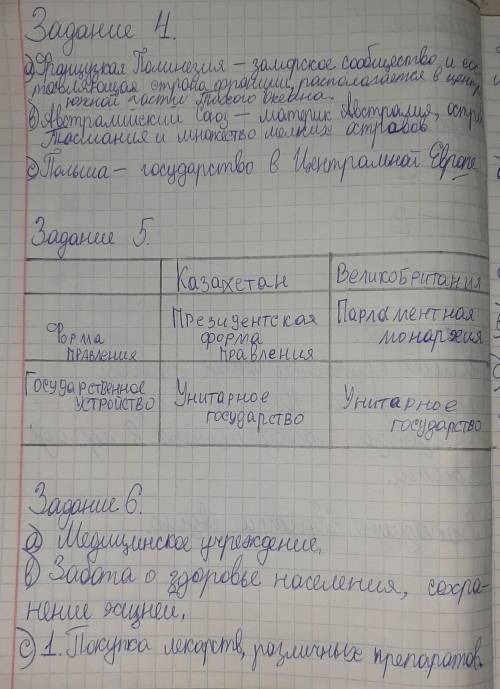 Задание 4.
а) Французкая Полинезия – заморское сообщество и сос
тавляющая страна франции, располагается в центр
южной части Тихого океана.
в) Австралийский Саюз – материк Австралия, остро
Тасмания и множество мелких островов
с) Польша – государство в Центральной Европе
Задание 5.
Казахстан Великобритания
Форма правления Президентская форма правления Парламентная монархия
Государственное устройство Унитарное государство Унитарное государство
Задание 6.
а) Медицинское учреждение,
в) Забота о здоровье населения, сохра-
нение жизней,
с) 1. Покупка лекарств, различных препаратов.